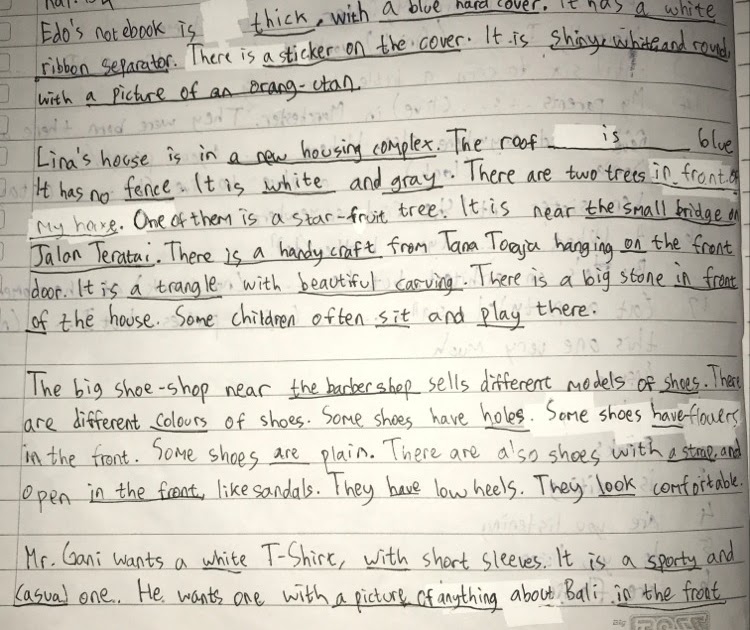 Edo's notebook is thick, with a blue hard cover. It has a white
ribbon separator. There is a sticker on the cover. It is shiny white and round,
with a picture of an orang-utan
Lina's house is in a new housing complex. The roof is blue
It has no fence. It is white and gray. There are two trees in front of
my house. One of them is a star-fruit tree. It is near the small bridge on
Jalan Teratai. There is a handy craft from Tana Toraja hanging on the front
door. It is a trangle with beautiful carving. There is a big stone in front
of the house. Some children often sit and play there.
The big shoe-shop near the barber shop sells different models of shoes. There
are different colours of shoes. Some shoes have holes. Some shoes have flowers
in the front. Some shoes are plain. There are also shoes with a strap, and
open in the front, like sandals. They have low heels. They look comfortable.
Mr. Gani wants a white T-Shirt, with short sleeves. It is a sporty and
casual one. He wants one with a picture of anything about Bali in the front
Big